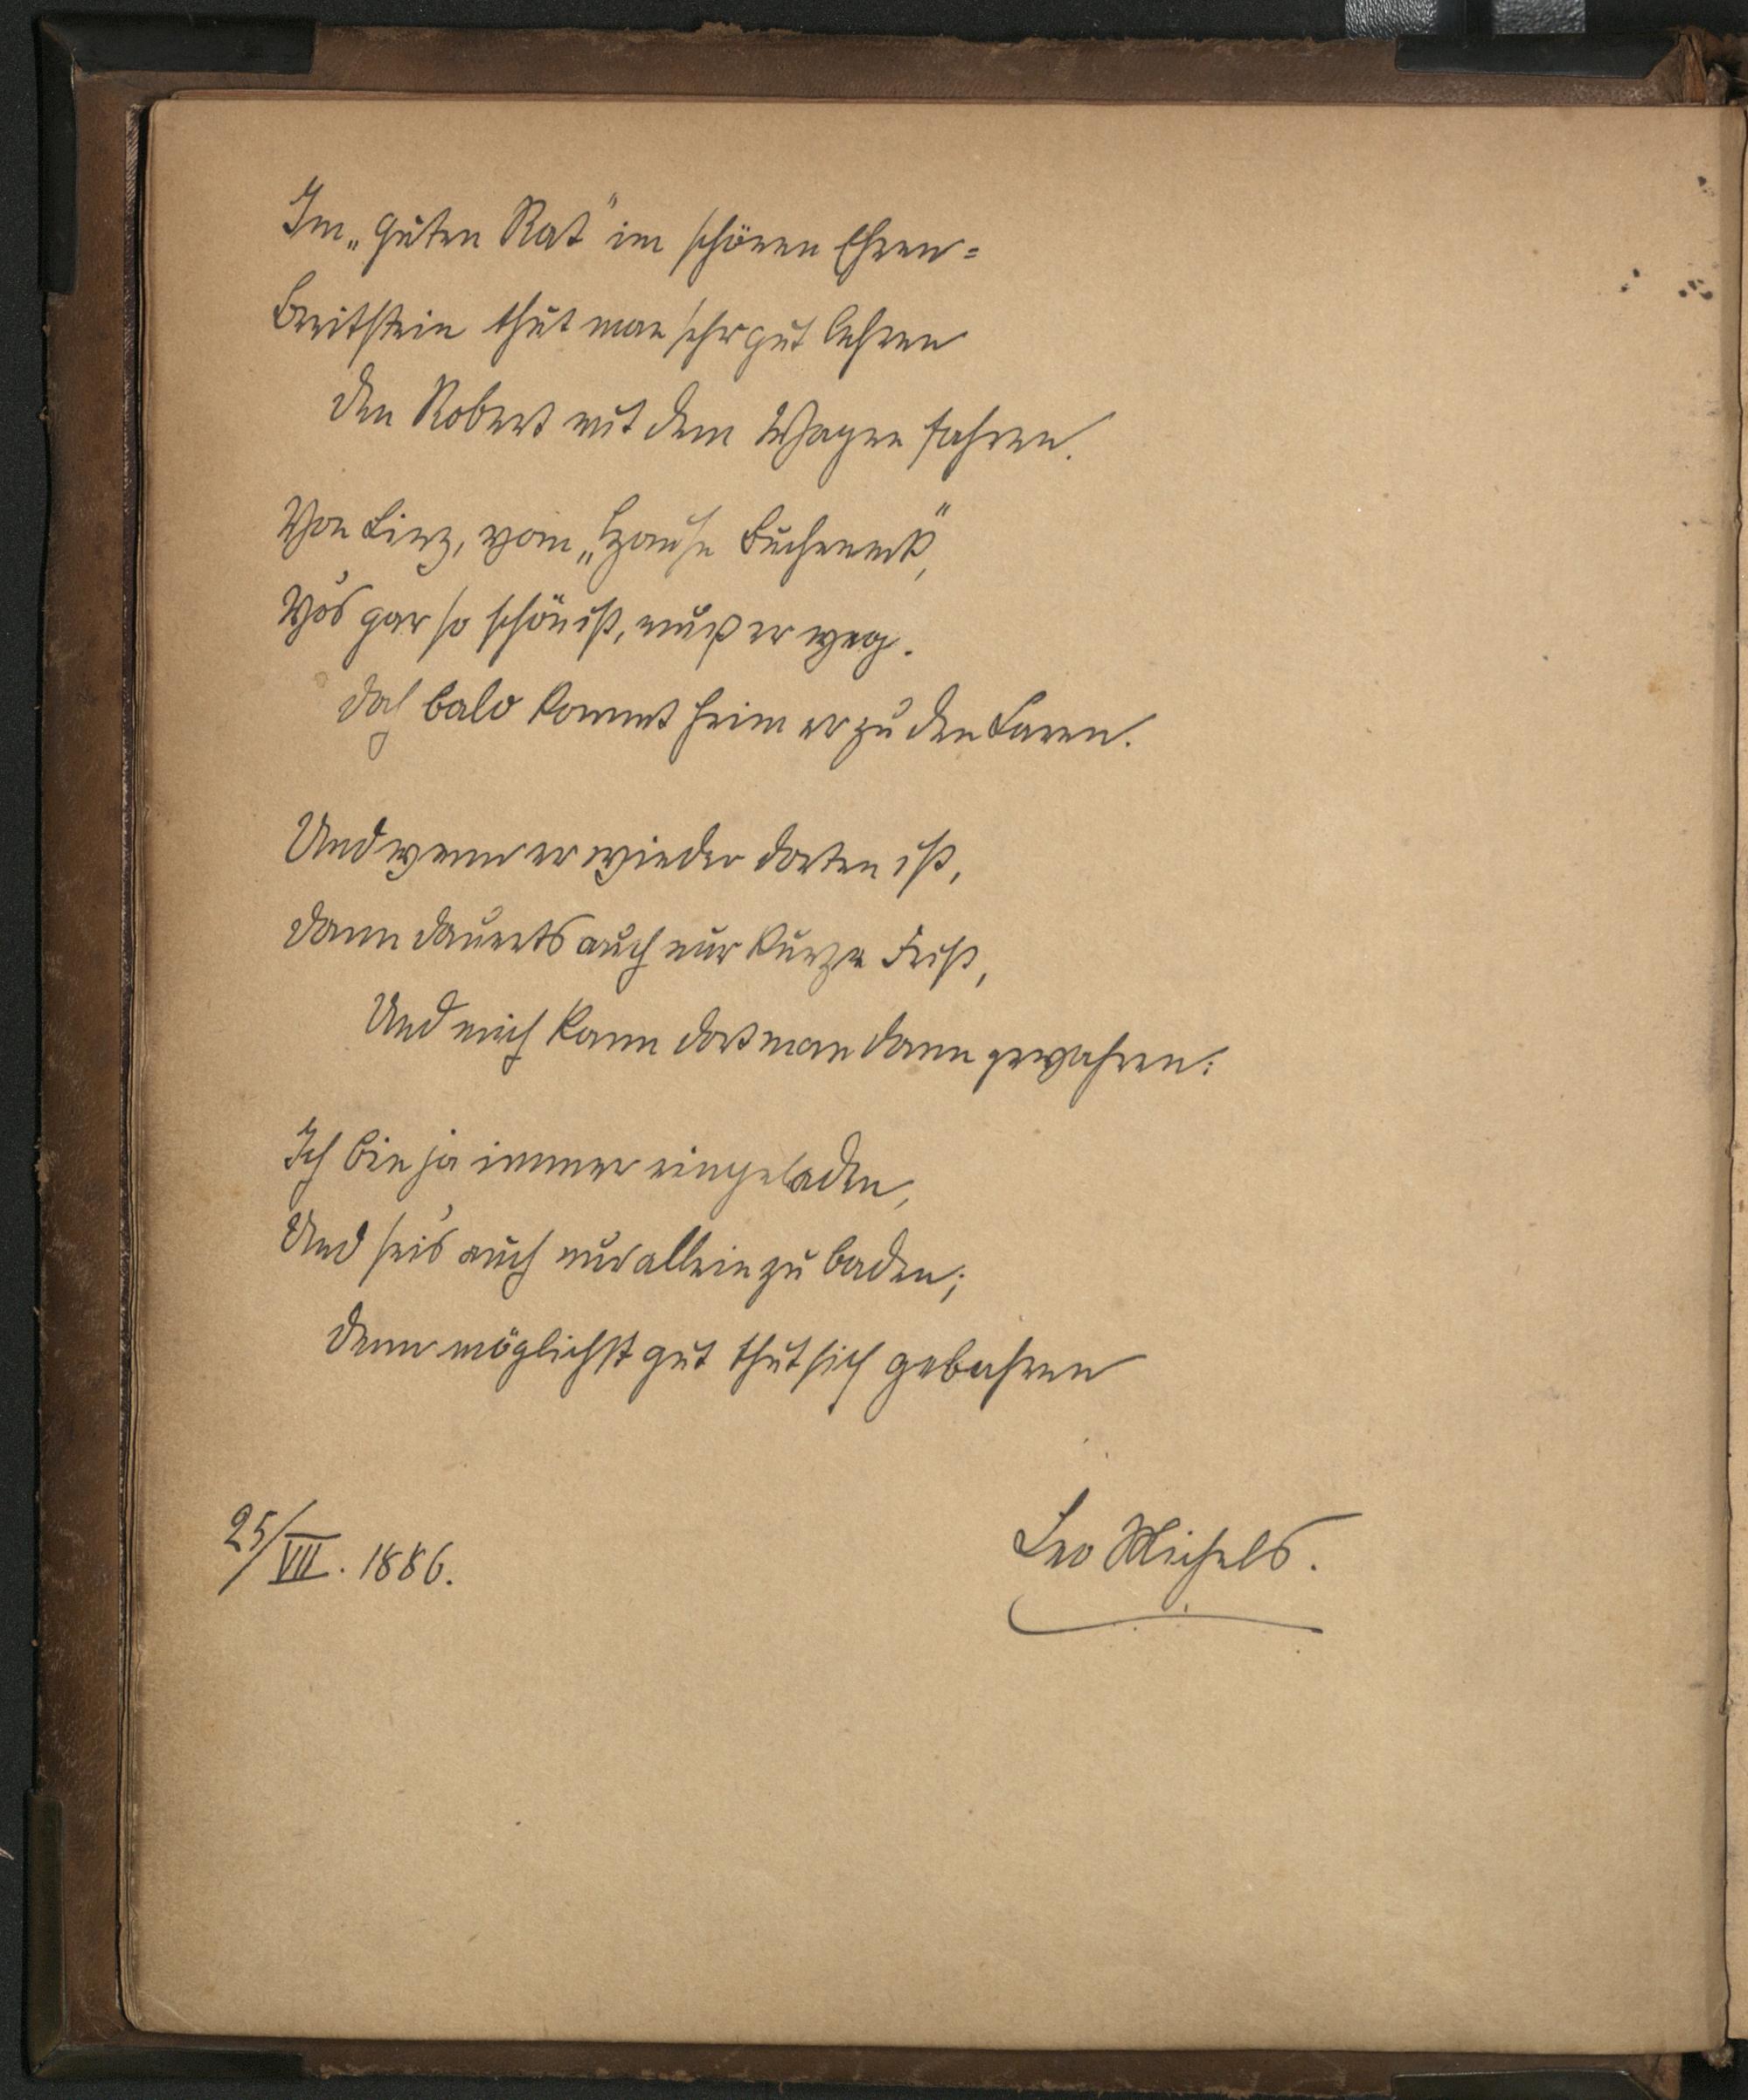 Im „guten Rat" im schönen Ehren=
breitstein thut man sehr gut lehren
den Robert mit dem Wagen fahren.
Von Linz, vom „Hause Bucheneck",
Wo's gar so schön ist, muß er weg.
doch bald kommt heim er zu den Laren.
Und wenn er wieder dorten ist,
dann dauerts auch nur kurze Frist,
Und mich kann dort man dann gewahren:
Ich bin ja immer eingeladen,
Und sei's auch nur allein zu baden;
denn möglichst gut thut sich gebahren
25/VII. 1886.
Leo Michels.